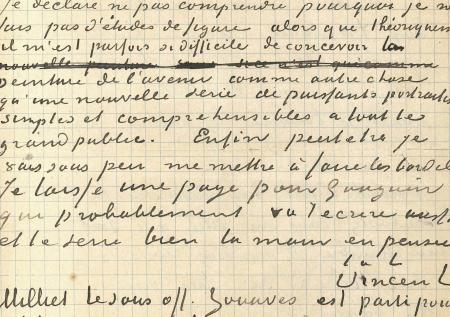 je déclare ne pas comprendre pourquoi je n
fais pas d'études de figure alors que théoriquem
il m'est parfois si difficile de concevoir la
peinture de l'avenir comme autre chose
qu'une nouvelle série de puissants portraitis
simples et comprehensibles a tout le
grand public. Enfin peutetre je
vais sous peu me mettre à faire les bordel
Je laisse une page pour Gauguin
qui probablement va t'ecrire aussi
et te serre bien la main en pensée
t à t
Vincent
Milliet le sous off. Zouaves est parti pour